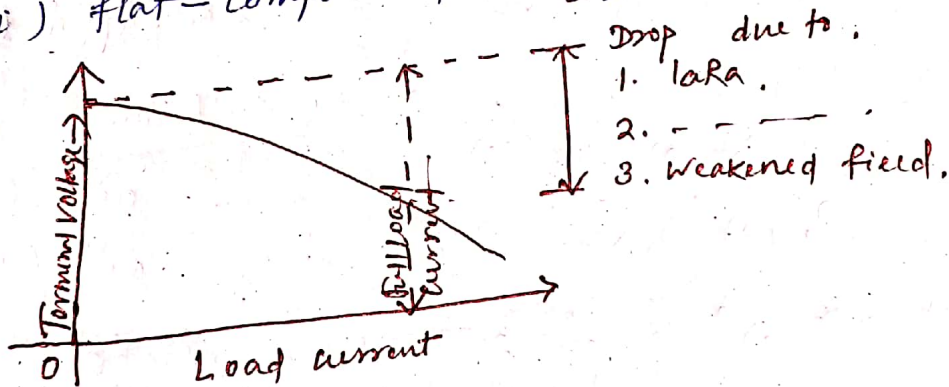 i) flat - comp
Drop due to :
1. IaRa .
2. - - — .
3. Weakened field.
Terminal voltage →
Full Load
current
O
Load current